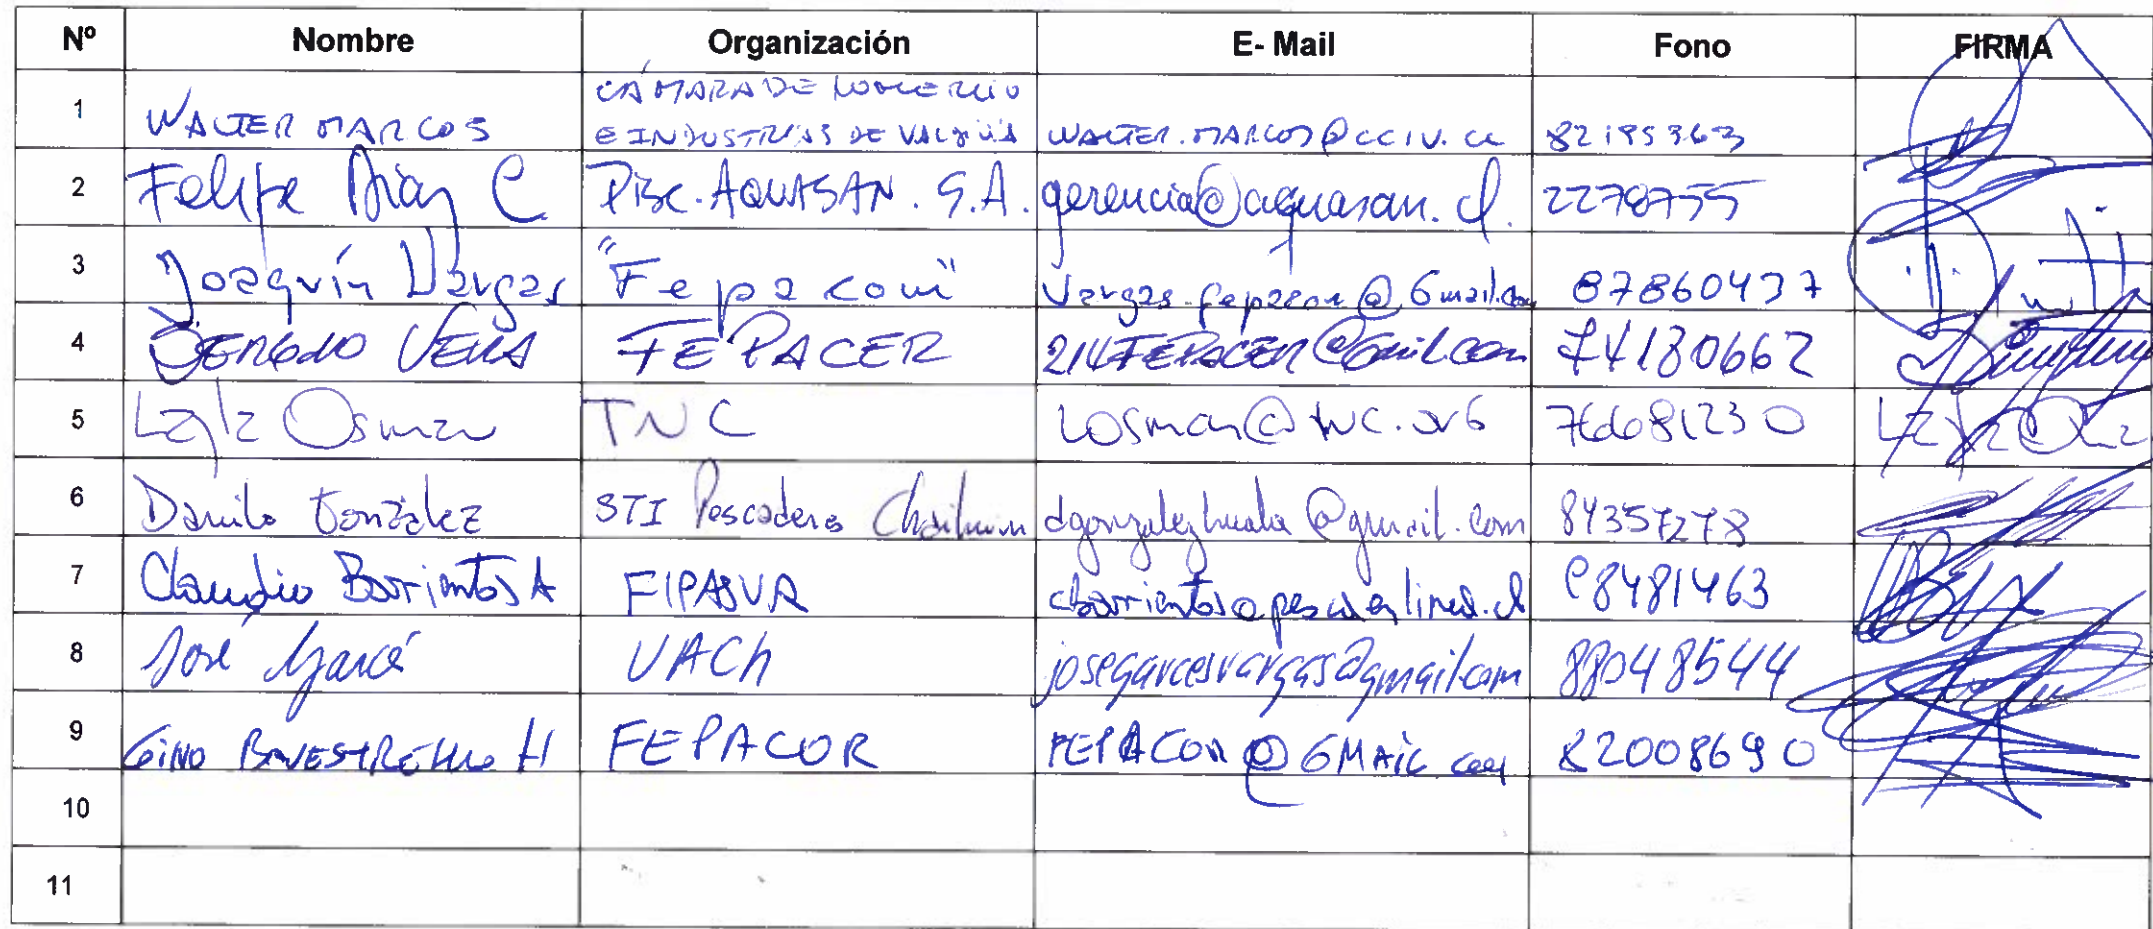 Nº Nombre Organización E- Mail Fono FIRMA
CÁMARA DE COMERCIO
1 WALTER MARCOS E INDUSTRIAS DE VALDIVIA WALTER.MARCOS@CCIV.CL 82195363
2 Felipe Diaz C Pisc. AQUASAN. S.A. gerencia@aquasan.cl. 2278755
3 Joaquín Vargas "Fepacom" Vargas.fepacom@Gmail.com 87860437
4 SERGIO VERA FEPACER 74180662
5 Layla Osman TNC Losman@tnc.org 76681230
6 Danilo González STI Pescadores Chaihuin dgonzalezhuala@gmail.com 84357278
7 Claudio Barrientos A FIPASUR cbarrientos@pescaenlinea.cl 88481463
8 José Garcé UACh josegarcesvargas@gmail.com 88048544
9 GINO BAVESTRELLO H FEPACOR FEPACOR@GMAIL.com 82008690
10
11